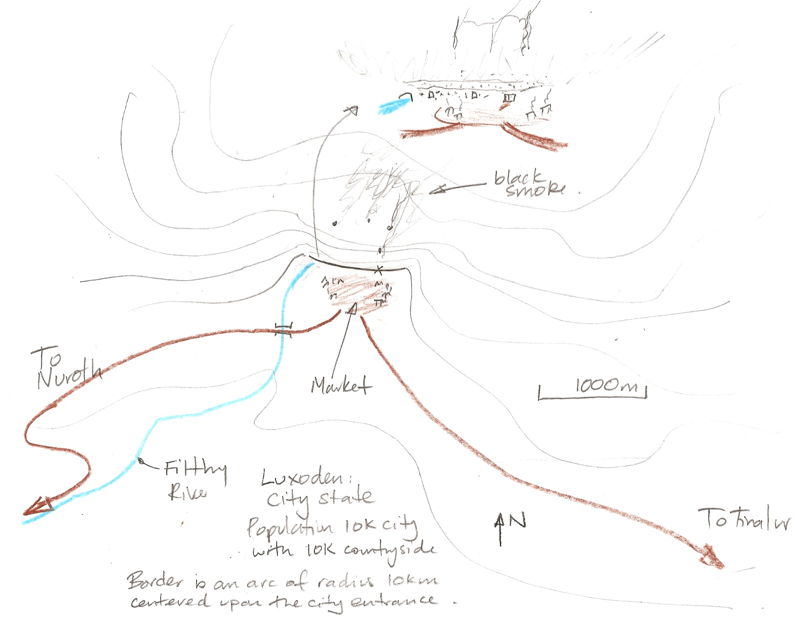 black
smoke.
To
Nuroth
Market
1000m
Filthy
River
Luxoden:
City state
Population 10K city
with 10K countryside
N
To Tinalur
Border is an arc of radius 10km
centered upon the city entrance.